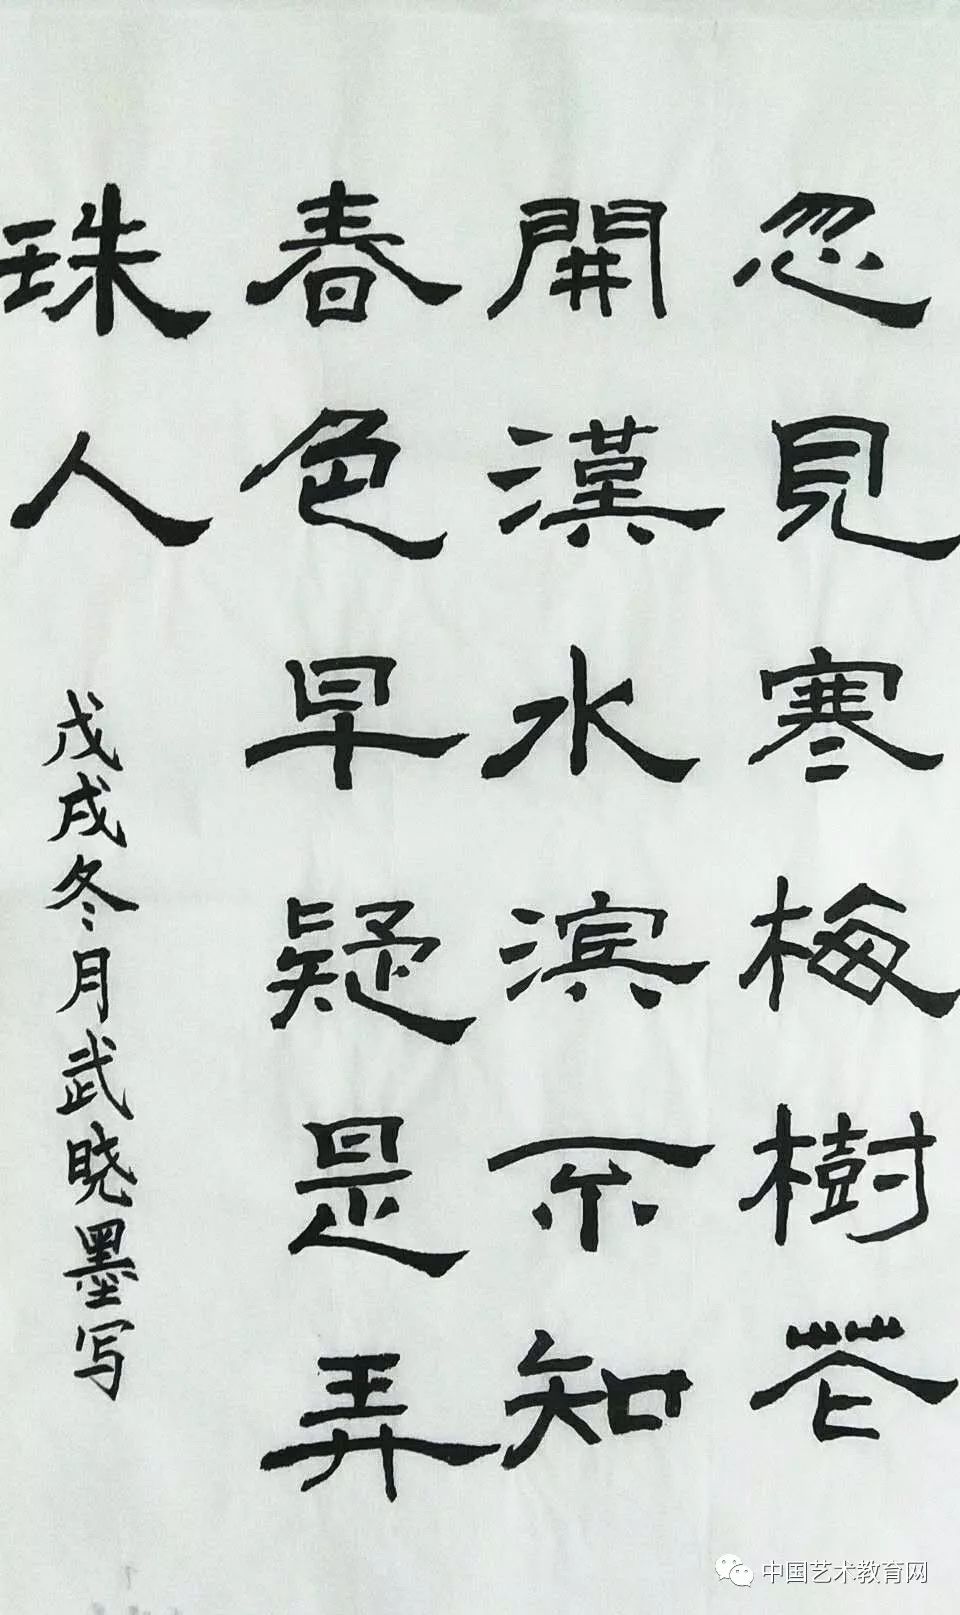 忽見寒梅樹花
開漢水濱不知
春色早疑是弄
珠人
戊戌冬月武晓墨写
中国艺术教育网